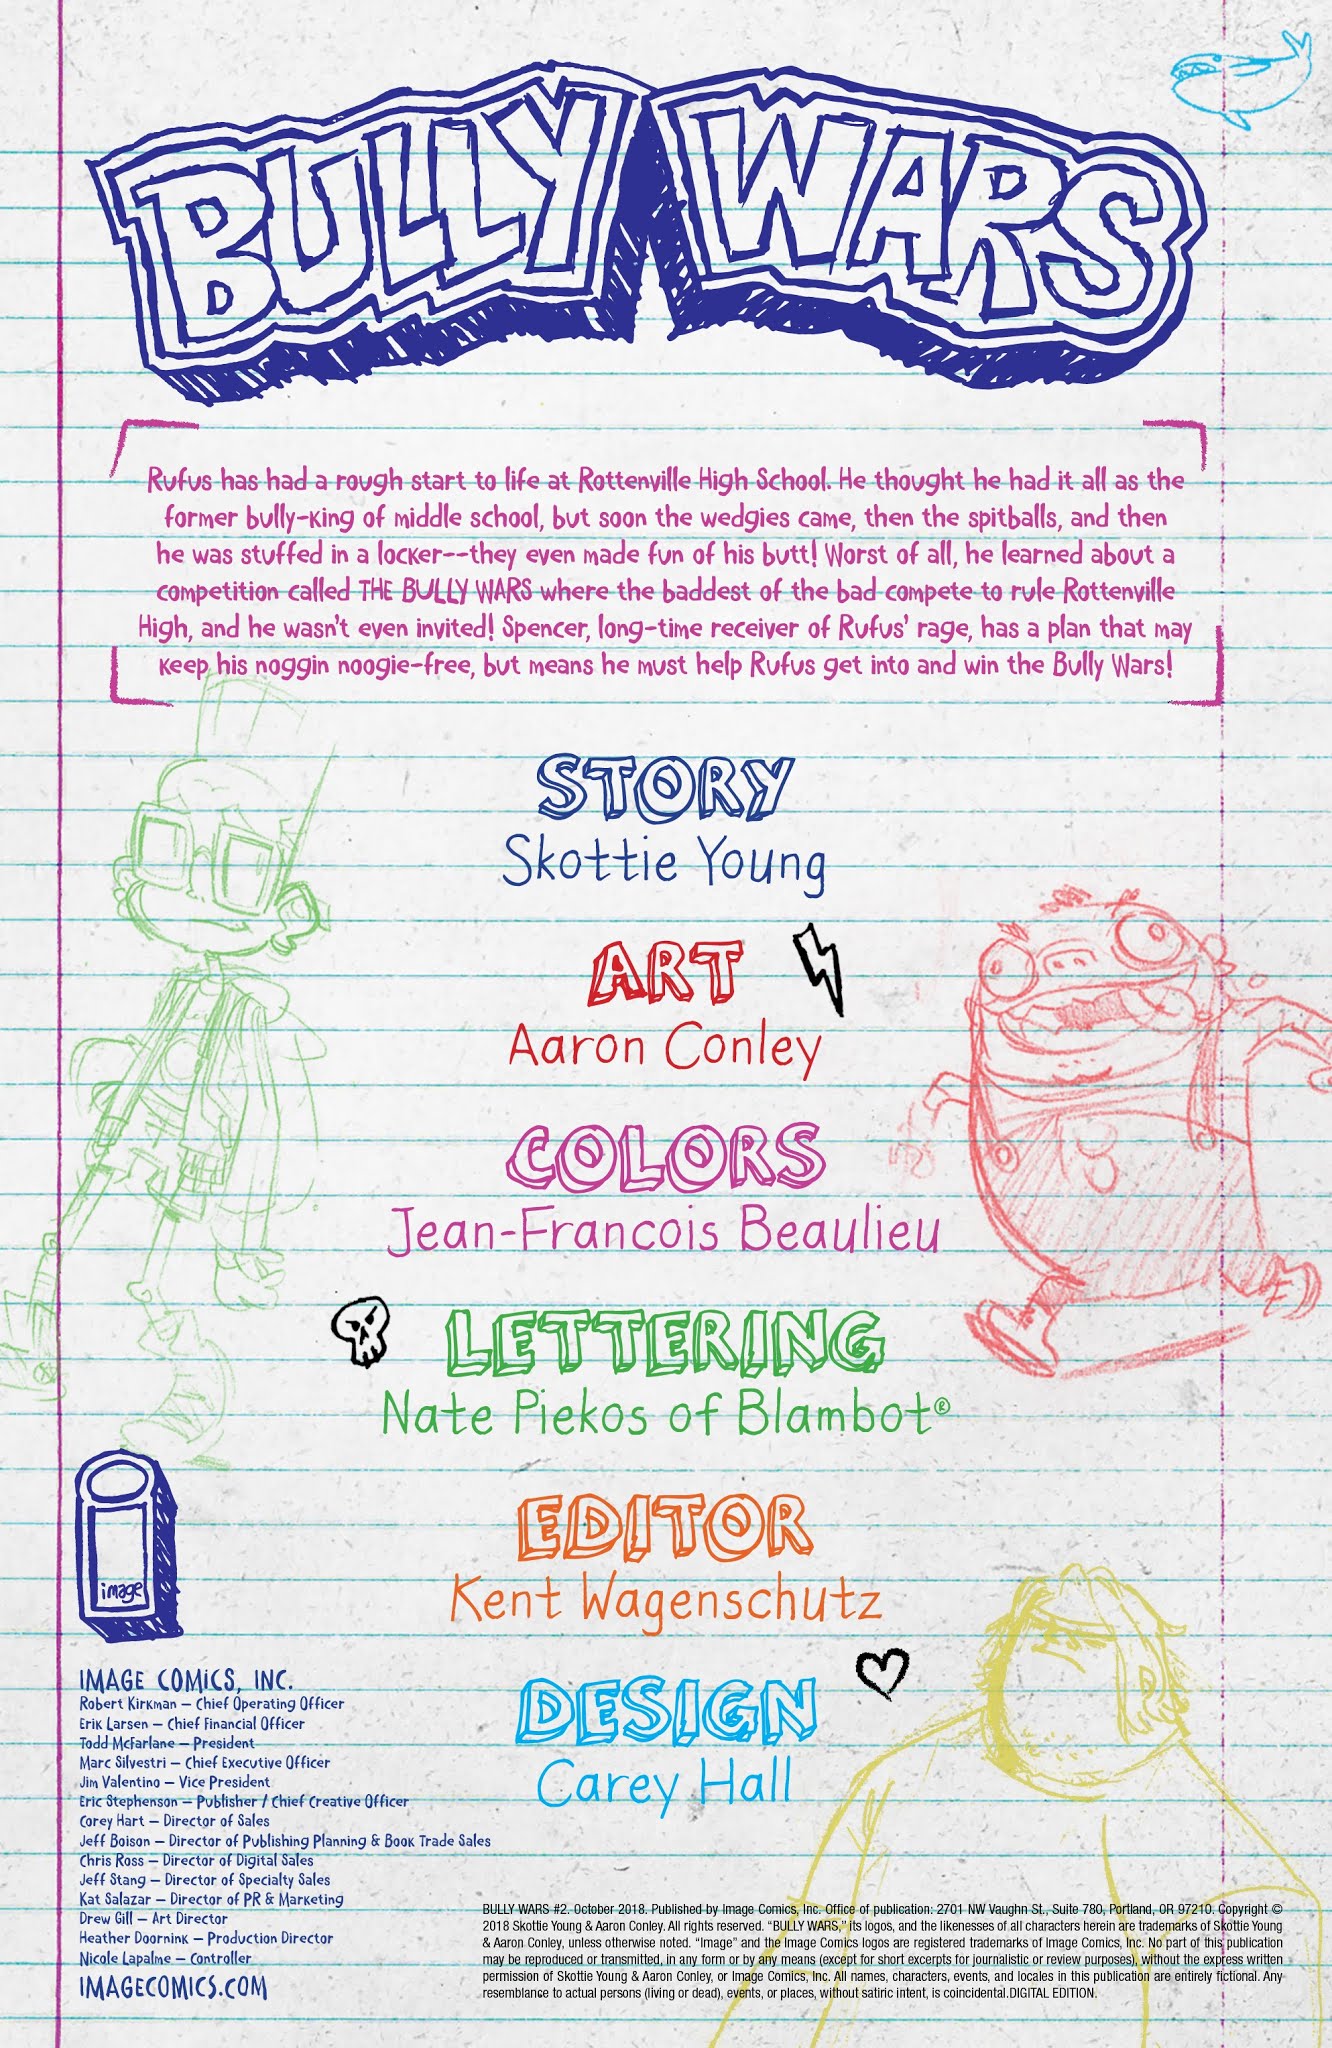 BULLY WARS
Rufus has had a rough start to life at Rottenville High School. He thought he had it all as the
former bully-king of middle school, but soon the wedgies came, then the spitballs, and then
he was stuffed in a locker--they even made fun of his butt! Worst of all, he learned about a
competition called THE BULLY WARS where the baddest of the bad compete to rule Rottenville
High, and he wasn't even invited! Spencer, long-time receiver of Rufus' rage, has a plan that may
keep his noggin noogie-free, but means he must help Rufus get into and win the Bully Wars!
STORY
Skottie Young
ART
Aaron Conley
COLORS
Jean-Francois Beaulieu
LETTERING
Nate Piekos of Blambot®
EDITOR
Kent Wagenschutz
DESIGN
Carey Hall
image
IMAGE COMICS, INC.
Robert Kirkman – Chief Operating Officer
Erik Larsen – Chief Financial Officer
Todd McFarlane – President
Marc Silvestri – Chief Executive Officer
Jim Valentino – Vice President
Eric Stephenson – Publisher / Chief Creative Officer
Corey Hart – Director of Sales
Jeff Boison – Director of Publishing Planning & Book Trade Sales
Chris Ross – Director of Digital Sales
Jeff Stang – Director of Specialty Sales
Kat Salazar – Director of PR & Marketing
Drew Gill – Art Director
Heather Doornink – Production Director
Nicole Lapalme – Controller
IMAGECOMICS.COM
BULLY WARS #2. October 2018. Published by Image Comics, Inc. Office of publication: 2701 NW Vaughn St., Suite 780, Portland, OR 97210. Copyright ©
2018 Skottie Young & Aaron Conley. All rights reserved. “BULLY WARS,” its logos, and the likenesses of all characters herein are trademarks of Skottie Young
& Aaron Conley, unless otherwise noted. “Image” and the Image Comics logos are registered trademarks of Image Comics, Inc. No part of this publication
may be reproduced or transmitted, in any form or by any means (except for short excerpts for journalistic or review purposes), without the express written
permission of Skottie Young & Aaron Conley, or Image Comics, Inc. All names, characters, events, and locales in this publication are entirely fictional. Any
resemblance to actual persons (living or dead), events, or places, without satiric intent, is coincidental.DIGITAL EDITION.